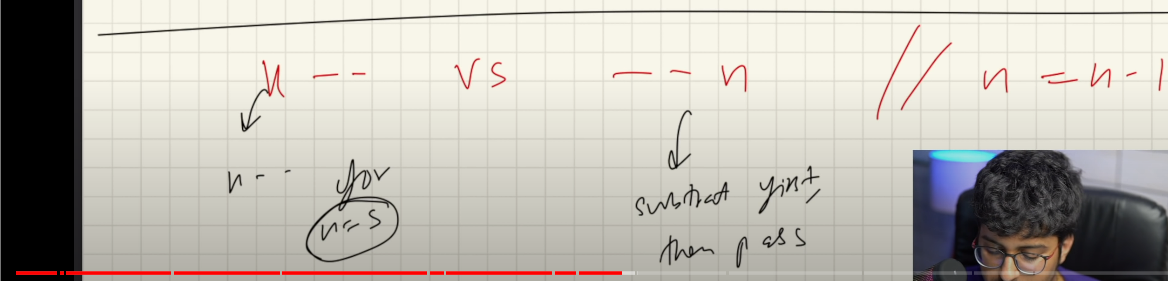 n-- vs --n // n = n-1
n-- for
n=5
subtract first,
then pass